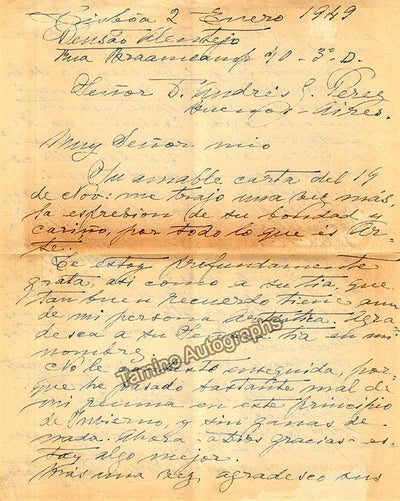 Lisboa 2 Enero 1949
Pensão Alentejo
Rua Braamcamp 10-3º-D.
Señor D. Andrés S. Perez
Buenos-Aires.
Muy Señor mio
Su amable carta del 19
de Nov: me trajo una vez más,
la espresion de su bondad y
cariño, por todo lo que és Ar-
te.
Le estoy profundamente
grata, asi como a su tia, que
tan buen recuerdo tiene aun
de mi persona artistica. Agra-
desca a su tia en mi
nombre.
No le enseguida, por
que he pasado bastante mal de
mi reuma en este principio
de Invierno, y sin ganas de
nada. Ahora - a Dios gracias - es-
toy algo mejor.
Más una vez agradesco sus
Tamino Autographs